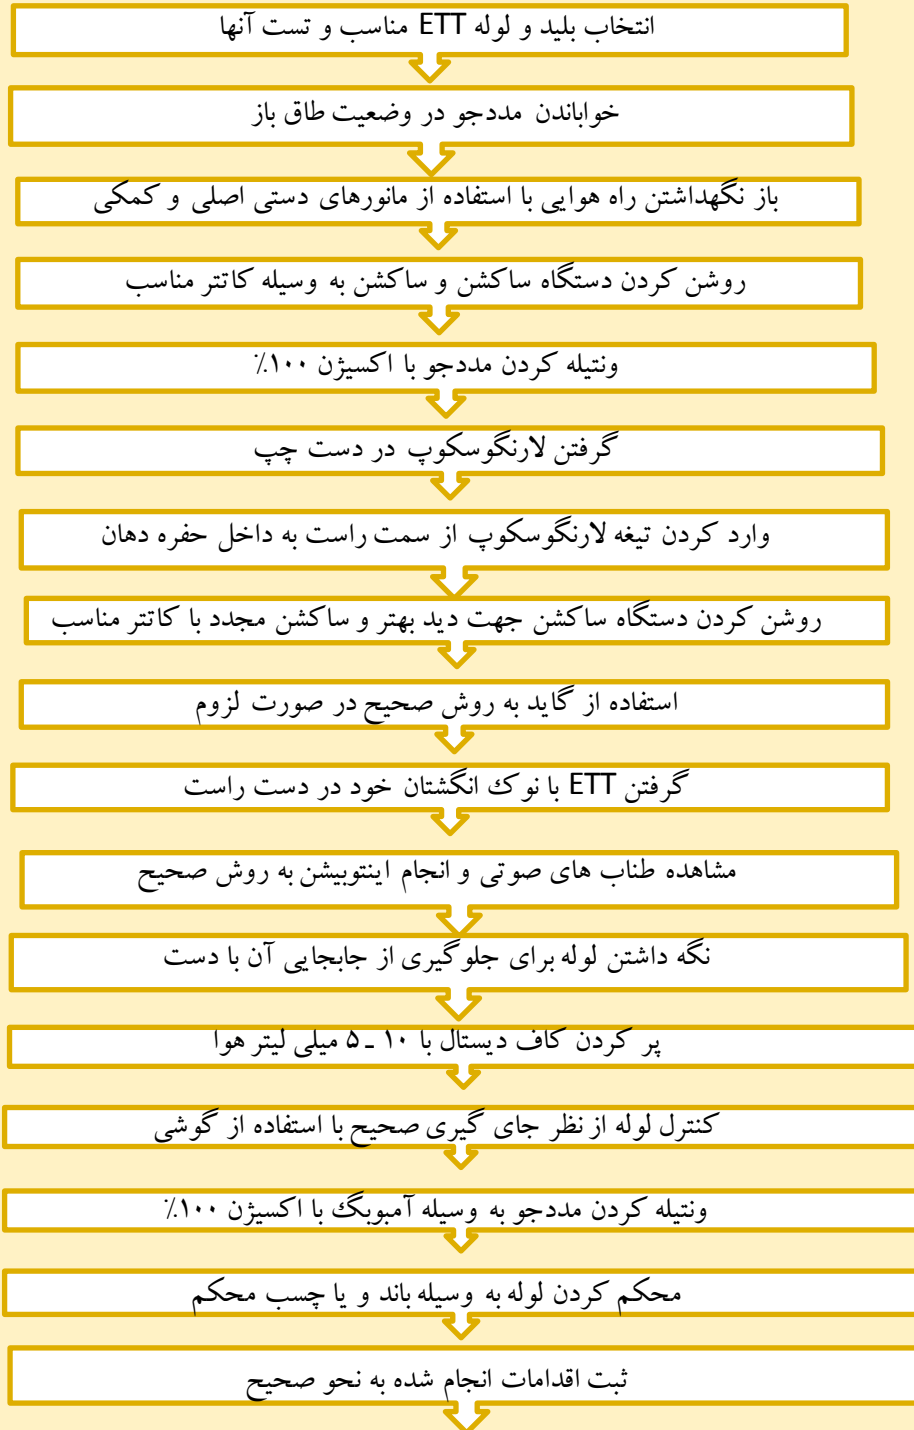 انتخاب بلید و لوله ETT مناسب و تست آنها
خواباندن مددجو در وضعیت طاق باز
باز نگهداشتن راه هوایی با استفاده از مانورهای دستی اصلی و کمکی
روشن کردن دستگاه ساکشن و ساکشن به وسیله کاتتر مناسب
ونتیله کردن مددجو با اکسیژن ۱۰۰٪
گرفتن لارنگوسکوپ در دست چپ
وارد کردن تیغه لارنگوسکوپ از سمت راست به داخل حفره دهان
روشن کردن دستگاه ساکشن جهت دید بهتر و ساکشن مجدد با کاتتر مناسب
استفاده از گاید به روش صحیح در صورت لزوم
گرفتن ETT با نوک انگشتان خود در دست راست
مشاهده طناب های صوتی و انجام اینتوبیشن به روش صحیح
نگه داشتن لوله برای جلوگیری از جابجایی آن با دست
پر کردن کاف دیستال با ۱۰ ـ ۵ میلی لیتر هوا
کنترل لوله از نظر جای گیری صحیح با استفاده از گوشی
ونتیله کردن مددجو به وسیله آمبوبگ با اکسیژن ۱۰۰٪
محکم کردن لوله به وسیله باند و یا چسب محکم
ثبت اقدامات انجام شده به نحو صحیح